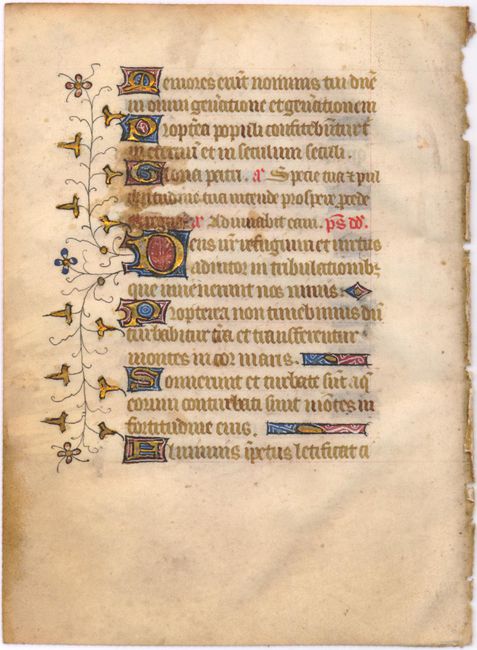 Memores erūt nominis tui dn̄e
in omni gen̄atione et gen̄ationem
Propt̄ea populi confitebūtur t̄
in eternū et in seculum seculi.
Gloria patri. a᷒ Specie tua ⁊ pul
critudine tua intende prospere procede
et regna. a᷒ Adiuuabit eam. p̄s dd̄.
Deus nr̄ refugium et uirtus
adiutor in tribulationibꝫ
que inuenerunt nos nimis
Propterea non timebimus dū
turbabitur t̄ra et transferentur
montes in cor maris.
Sonuerunt et turbate sūt aq̄
eorum conturbati sunt mōtes in
fortitudine eius.
Fluminis īpetus letificat ci